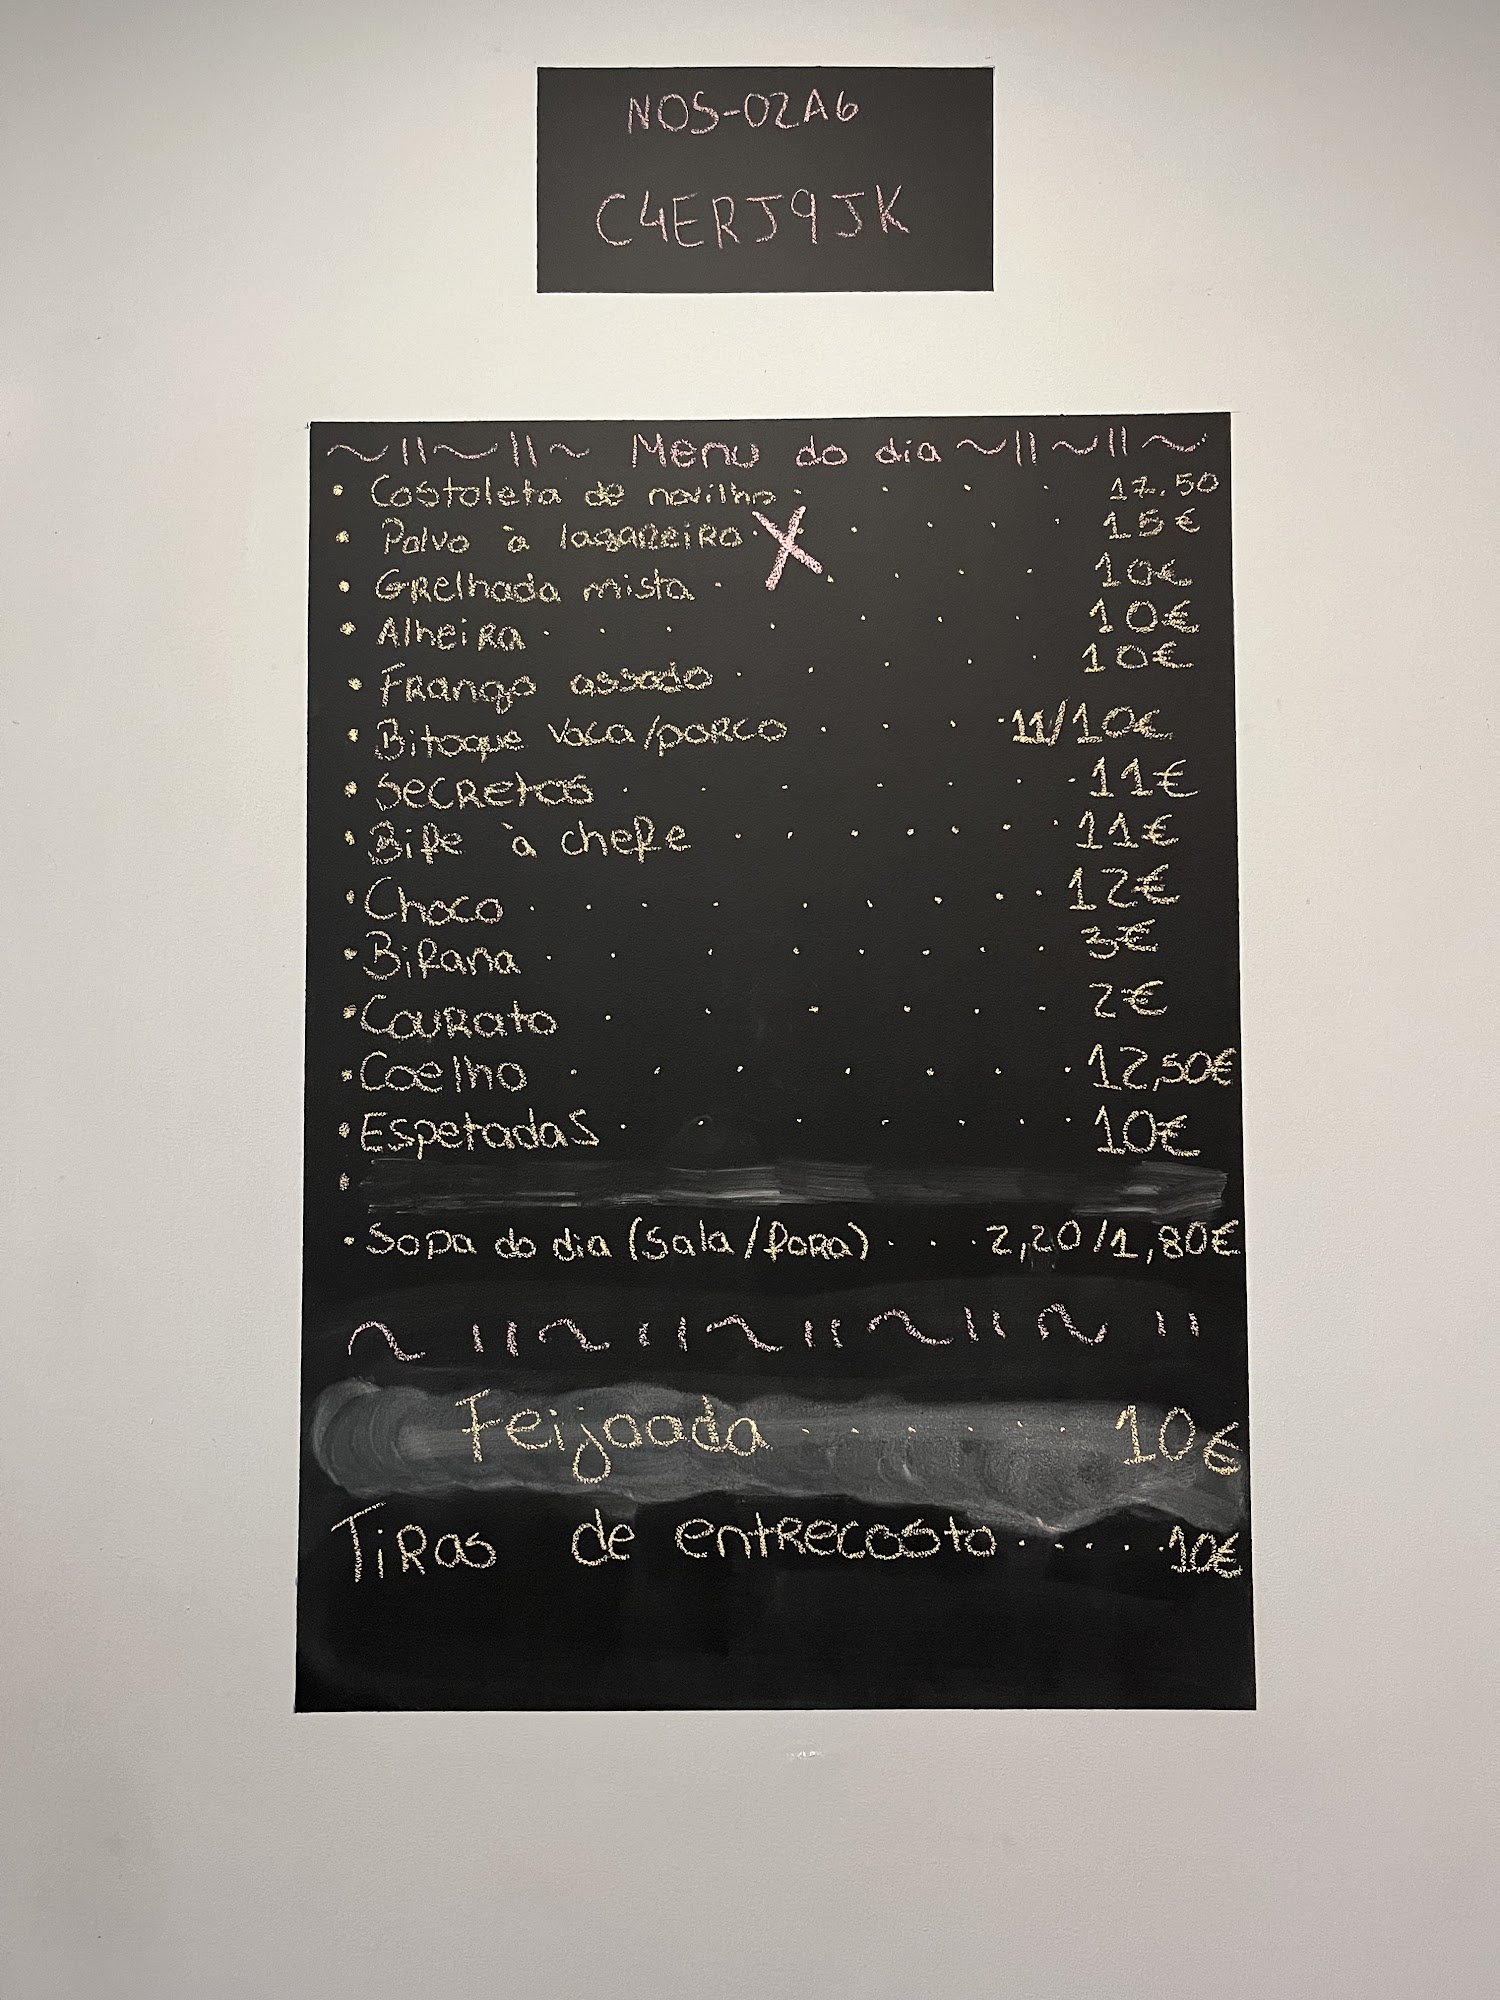 NOS-02A6
C4ERJ9JK
~||~||~ Menu do dia ~||~||~
• Costoleta de novilho . . . . 12.50
• Polvo à lagareiro . X . . . . 15€
• Grelhada mista . . . . . 10€
• Alheira . . . . . . . 10€
• Frango assado . . . . . 10€
• Bitoque vaca/porco . . . . 11/10€
• Secretos . . . . . . . 11€
• Bife à chefe . . . . . . . 11€
• Choco . . . . . . . . . 12€
• Bifana . . . . . . . . 3€
• Courato . . . . . . 2€
• Coelho . . . . . . . 12,50€
• Espetadas . . . . . . 10€
•
• Sopa do dia (Sala/fora) . . . 2,20/1,80€
~ || ~ || ~ || ~ || ~ ||
Feijoada . . . . . . 10€
Tiras de entrecosto . . . . . 10€